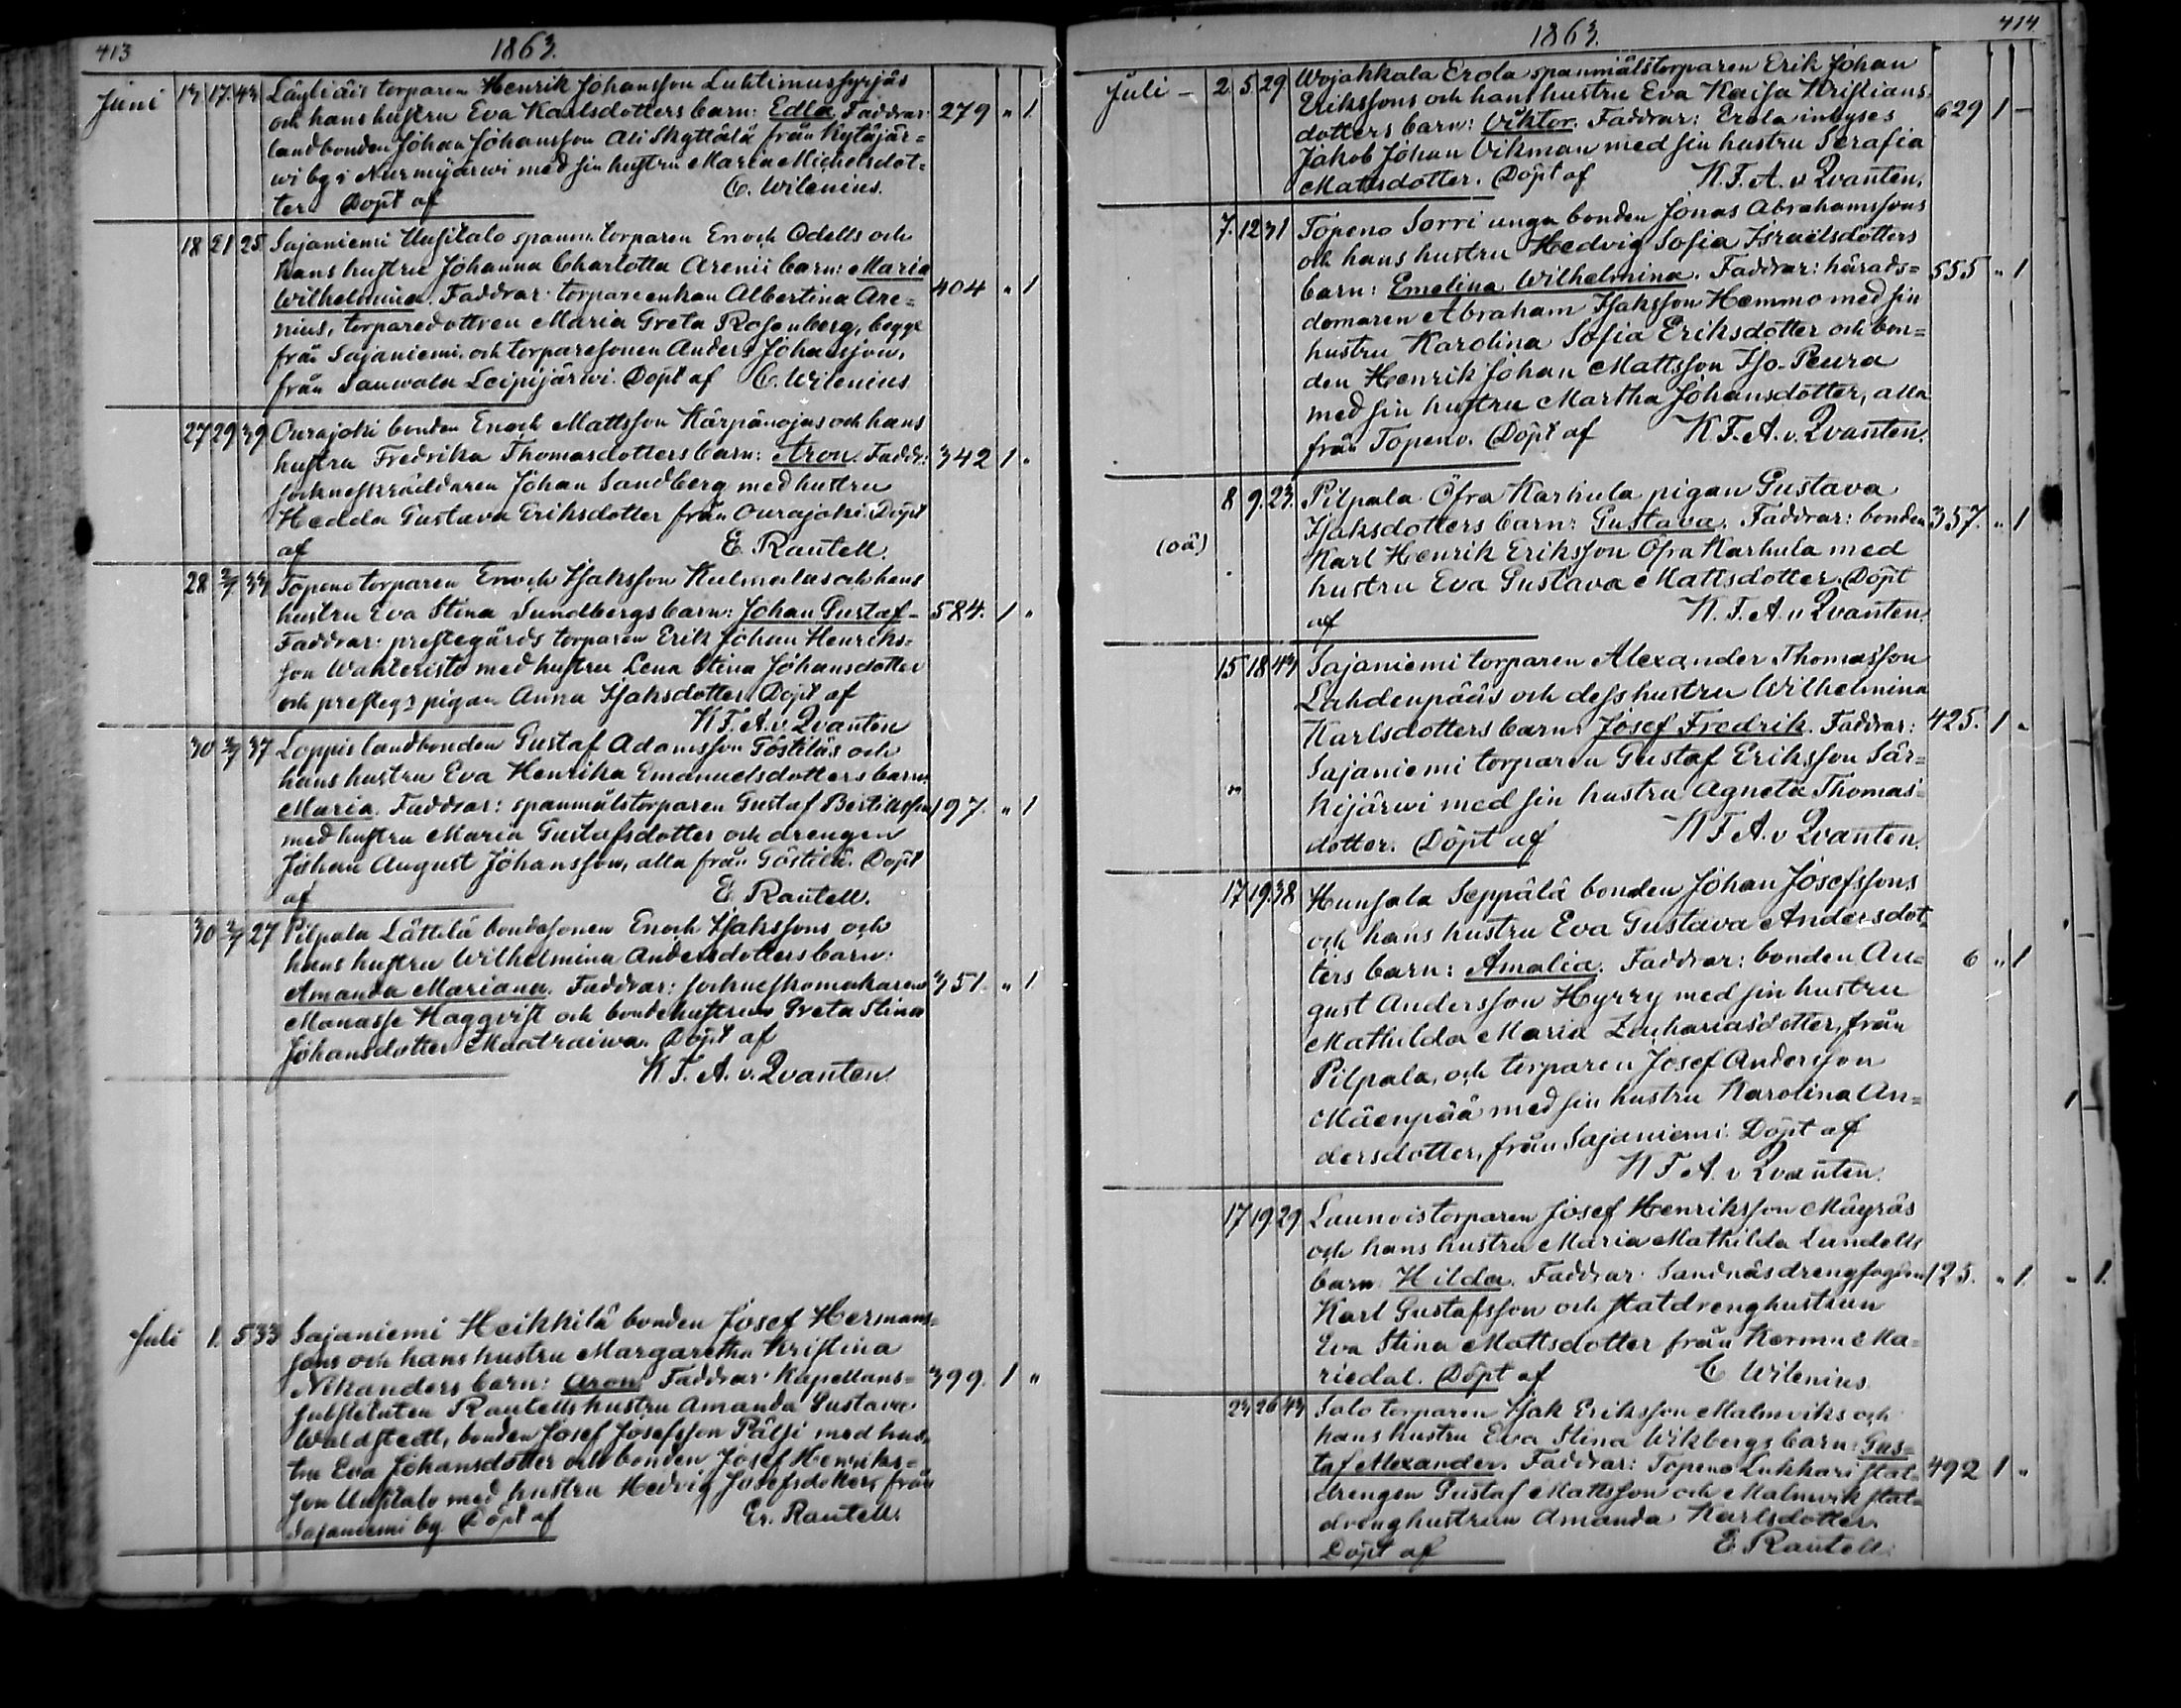 413 1863.
Juni 13 17. 43 Läyliäis torparen Henrik Johansson Luhtimussyrjäs
och hans hustru Eva Karlsdotters barn: Edla. Faddrar: 279 " 1
landbonden Johan Johansson Ali Skyttälä från Kytäjär=
wi by i Nurmijärwi med sin hustru Maria Michelsdot=
ter. Döpt af C. Wilenius.
18 21 25 Sajaniemi Uusitalo spanm. torparen Enoch Odells och
hans hustru Johanna Charlotta Arenii barn: Maria
Wilhelmina. Faddrar: torpareenkan Albertina Are= 404 " 1
nius, torparedottren Maria Greta Rosenberg, begge
från Sajaniemi, och torparesonen Anders Johansson,
från Sauwala Leipijärwi. Döpt af C. Wilenius
27 29 39 Ourajoki bonden Enoch Mattsson Kärpänojas och hans
hustru Fredrika Thomasdotters barn: Aron. Faddr: 342 1 "
sockneskräddaren Johan Sandberg med hustru
Hedda Gustava Eriksdotter från Ourajoki. Döpt
af E. Rautell.
28 2/7 33 Topeno torparen Enoch Isaksson Kulmalas och hans
hustru Eva Stina Sundbergs barn: Johan Gustaf- 584. 1 "
Faddrar: prestegårds torparen Erik Johan Henriks=
son Wahteristo med hustru Lena Stina Johansdotter
och presteg:s pigan Anna Isaksdotter. Döpt af
K. F. A. v. Qvanten
30 2/7 37 Loppis landbonden Gustaf Adamsson Töstiläs och
hans hustru Eva Henrika Emanuelsdotters barn
Maria. Faddrar: spanmålstorparen Gustaf Bertilsson 197. " 1
med hustru Maria Gustafsdotter och drengen
Johan August Johansson, alla från Töstilä. Döpt
af E. Rautell.
30 2/7 27 Pilpala Lättilä bondesonen Enoch Isakssons och
hans hustru Wilhelmina Andersdotters barn:
Amanda Mariana. Faddrar: sockneskomakaren 351. " 1
Manasse Haggvist och bondehustrun Greta Stina
Johansdotter Maatraiwa. Döpt af
K. F. A. v. Qvanten
Juli 1. 5 33 Sajaniemi Heikkilä bonden Josef Hermans=
sons och hans hustru Margaretha Kristina
Nikanders barn: Aron. Faddrar: Kapellans= 399. 1 "
substituten Rautells hustru Amanda Gustava
Waldstedt, bonden Josef Josefsson Pälsi med hus=
tru Eva Johansdotter och bonden Josef Henriks=
son Uusitalo med hustru Hedvig Josefsdotter, från
Sajaniemi by. Döpt af Er. Rautell.
1863. 414
Juli - 2 5 29 Wojakkala Erola spanmålstorparen Erik Johan
Erikssons och hans hustru Eva Kaisa Kristians=
dotters barn: Viktor. Faddrar: Erola inhyses 629 1 -
Jakob Johan Vikman med sin hustru Serafia
Mattsdotter. Döpt af K. F. A. v Qvanten.
7. 12 31 Topeno Sorri unga bonden Jonas Abrahamssons
och hans hustru Hedvig Sofia Israelsdotters
barn: Emelina Wilhelmina. Faddrar: härads= 555 " 1
domaren Abraham Isaksson Hemmo med sin
hustru Karolina Sofia Eriksdotter och bon=
den Henrik Johan Mattsson Iso-Peura
med sin hustru Martha Johansdotter, alla
från Topeno. Döpt af K. F. A. v. Qvanten.
8 9. 23. Pilpala Öfra Karhula pigan Gustava
Isaksdotters barn: Gustava. Faddrar: bonden 357. " 1
(oä) Karl Henrik Eriksson Öfra Karhula med
hustru Eva Gustava Mattsdotter. Döpt
af K. F. A. v Qvanten.
15 18 43 Sajaniemi torparen Alexander Thomasson
Lahdenpääs och dess hustru Wilhelmina
Karlsdotters barn: Josef Fredrik. Faddrar: 425. 1 "
Sajaniemi torparen Gustaf Eriksson Sär=
kijärwi med sin hustru Agneta Thomas=
dotter. Döpt af K F A. v Qvanten.
17 19. 38 Hunsala Seppälä bonden Johan Josefssons
och hans hustru Eva Gustava Andersdot=
ters barn: Amalia. Faddrar: bonden Au= 6 " 1
gust Andersson Hyrry med sin hustru
Mathilda Maria Zachariasdotter, från
Pilpala, och torparen Josef Andersson
Mäenpää med sin hustru Karolina An=
dersdotter, från Sajaniemi. Döpt af
K F A. v Qvanten.
17 19. 29. Launois torparen Josef Henriksson Mäyräs
och hans hustru Maria Mathilda Lundells
barn: Hilda. Faddrar: Sandnäs drengfogden 125. " 1. " 1.
Karl Gustafsson och statdrenghustrun
Eva Stina Mattsdotter från Kormu Ma=
riedal. Döpt af C Wilenius.
23 26 43 Salo torparen Isak Eriksson Malmviks och
hans hustru Eva Stina Wikbergs barn: Gus=
taf Alexander. Faddrar: Topeno Lukkari stat= 492 1 "
drengen Gustaf Mattsson och Malmvik stat=
drenghustrun Amanda Karlsdotter.
Döpt af E. Rautell.